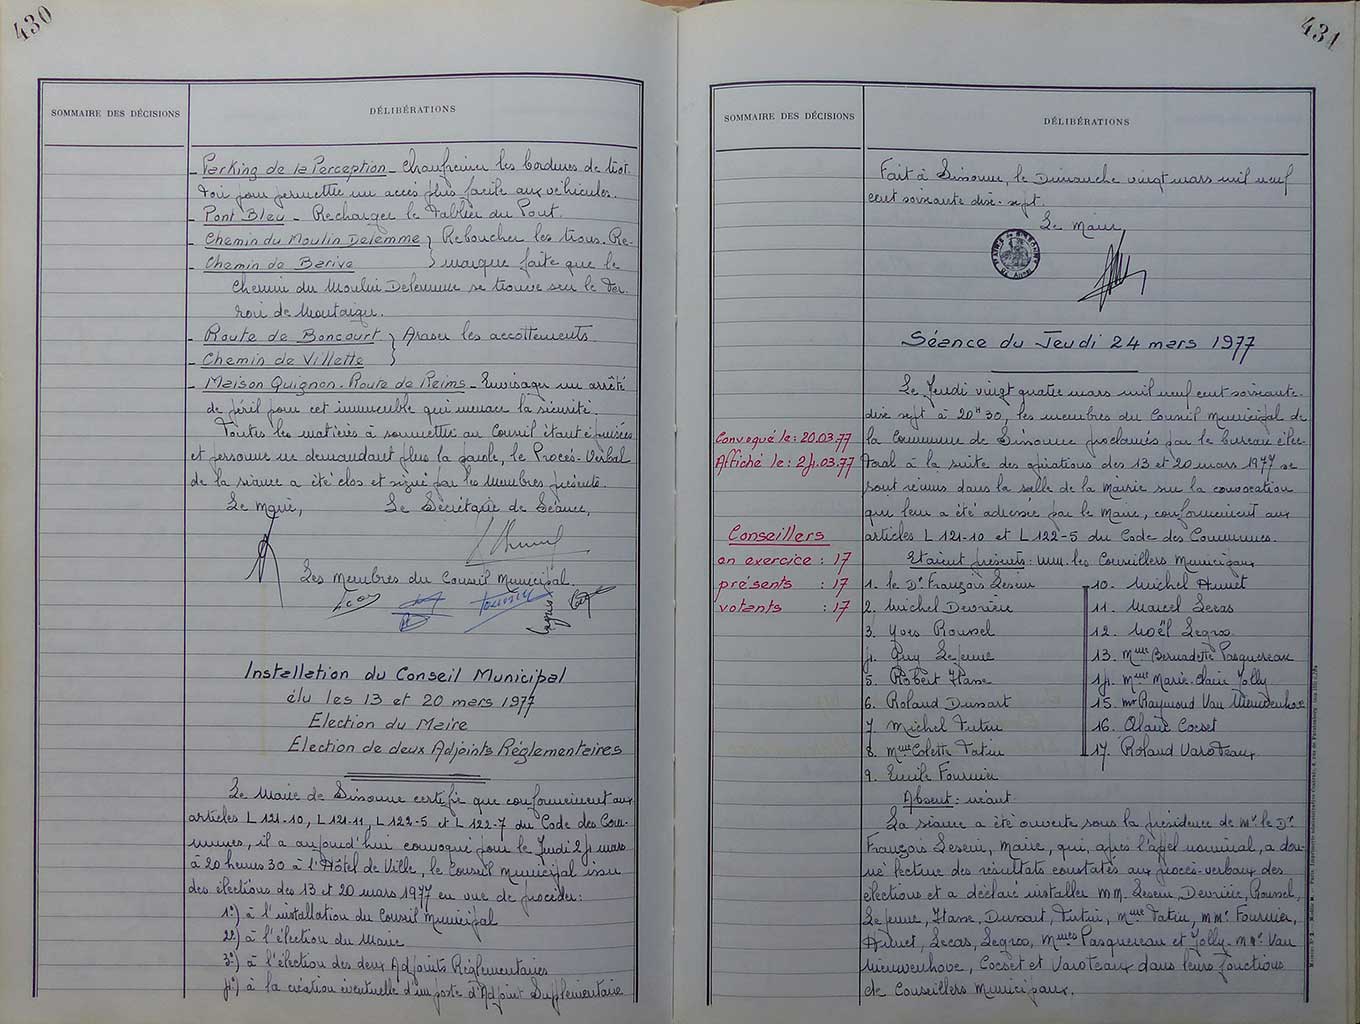 430
SOMMAIRE DES DÉCISIONS
DÉLIBÉRATIONS
- Parking de la Perception - Chanfreiner les bordures de trot-
toir pour permettre un accès plus facile aux véhicules.
- Pont Bleu - Recharger le tablier du Pont.
- Chemin du Moulin Delemme } Reboucher les trous. Re-
- Chemin de Barive } marque faite que le
Chemin du Moulin Delemme se trouve sur le ter-
roir de Montaigu.
- Route de Boncourt } Araser les accottements.
- Chemin de Villette }
- Maison Quignon. Route de Reims - Envisager un arrêté
de péril pour cet immeuble qui menace la sécurité.
Toutes les matières à soumettre au Conseil étant épuisées
et personne ne demandant plus la parole, le Procès-Verbal
de la séance a été clos et signé par les membres présents.
Le Maire, Le Secrétaire de Séance,
Les Membres du Conseil Municipal.
Installation du Conseil Municipal
élu les 13 et 20 mars 1977
Election du Maire
Election de deux Adjoints Réglementaires
Le Maire de Sissonne certifie que conformément aux
articles L 121-10, L 121-11, L 122-5 et L 122-7 du Code des Com-
munes, il a aujourd'hui convoqué pour le Jeudi 24 mars
à 20 heures 30 à l'Hôtel de Ville, le Conseil Municipal issu
des élections des 13 et 20 mars 1977 en vue de procéder:
1°) à l'installation du Conseil Municipal
2°) à l'élection du Maire
3°) à l'élection des deux Adjoints Réglementaires
4°) à la création éventuelle d'un poste d'Adjoint Supplémentaire
431
SOMMAIRE DES DÉCISIONS
DÉLIBÉRATIONS
Fait à Sissonne, le Dimanche vingt mars mil neuf
cent soixante dix-sept.
Le Maire,
Séance du Jeudi 24 mars 1977
Le Jeudi vingt quatre mars mil neuf cent soixante-
dix sept à 20H30, les membres du Conseil Municipal de
Convoqué le: 20.03.77
la Commune de Sissonne proclamés par le bureau élec-
Affiché le: 24.03.77
toral à la suite des opérations des 13 et 20 mars 1977 se
sont réunis dans la salle de la Mairie sur la convocation
qui leur a été adressée par le Maire, conformément aux
Conseillers
articles L 121-10 et L 122-5 du Code des Communes.
en exercice : 17
Etaient présents: MM. les Conseillers Municipaux
présents : 17
votants : 17
1. le Dr François Leseur
2. Michel Devrière
3. Yves Roussel
4. Guy Lejeune
5. Robert Hasse
6. Roland Dussart
7. Michel Tutin
8. Mme Colette Tatin
9. Emile Fournier
10. Michel Amet
11. Marcel Lecas
12. Noël Legros
13. Mme Bernadette Pasquereau
14. Mme Marie-Claire Jolly
15. Mr Raymond Van Nieuwenhove
16. Alain Cocset
17. Roland Varoteaux
Absent: néant
La séance a été ouverte sous la présidence de Mr. le Dr.
François Leseur, Maire, qui, après l'appel nominal, a don-
né lecture des résultats constatés aux procès-verbaux des
élections et a déclaré installer MM. Leseur, Devrière, Roussel,
Lejeune, Hasse, Dussart, Tutin, Mme Tatin, MMrs Fournier,
Amet, Lecas, Legros, Mmes Pasquereau et Jolly, MMrs Van
Nieuwenhove, Cocset et Varoteaux dans leurs fonctions
de Conseillers Municipaux.